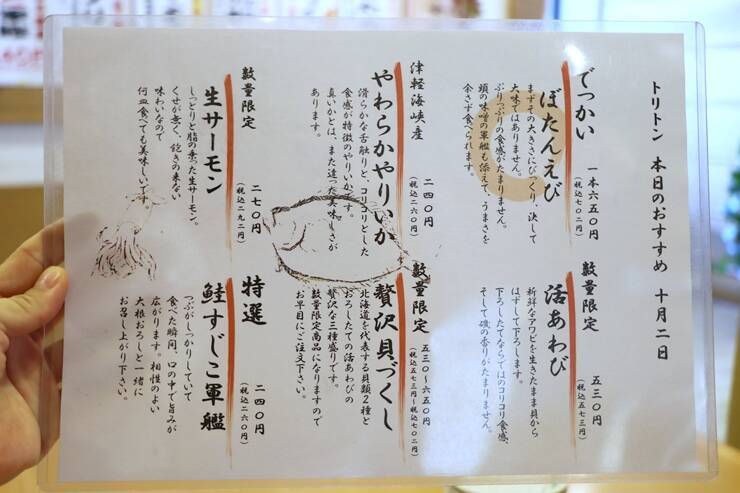 トリトン 本日のおすすめ 十月二日
でっかい
ぼたんえび
一本六五〇円
(税込七〇二円)
まずその大きさにびっくり、決して
大味ではありません。
ぷりっぷりの食感がたまりません。
頭の味噌の軍艦も添えて、うまさを
余さず食べられます。
数量限定
活あわび
五三〇円
(税込五七三円)
新鮮なアワビを生きたまま貝から
はずして下ろします。
下ろしたてならではのコリコリ食感、
そして磯の香りがたまりません。
津軽海峡産
やわらかやりいか
二四〇円
(税込二六〇円)
滑らかな舌触りと、コリコリとした
食感が特徴のやりいかです。
真いかとは、また違った美味しさが
あります。
数量限定
贅沢貝づくし
五三〇～六五〇円
(税込五七三円～税込七〇二円)
北海道を代表する貝類2種と
おろしたての活あわびの
贅沢な三種盛りです。
数量限定商品になりますので
お早目にご注文下さい。
数量限定
生サーモン
二七〇円
(税込二九二円)
しっとりと脂の乗った生サーモン。
くせが無く、飽きの来ない
味わいなので
何皿食べても美味しいです。
特選
鮭すじこ軍艦
二四〇円
(税込二六〇円)
つぶがしっかりしていて
食べた瞬間、口の中で旨みが
広がります。相性のよい
大根おろしと一緒に
お召し上がり下さい。